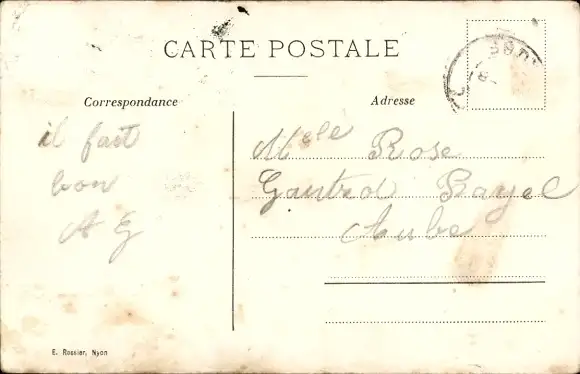 CARTE POSTALE
Correspondance
Adresse
il fait
bon
A G
Melle Rose
Bayel
Aube
E. Rossier, Nyon